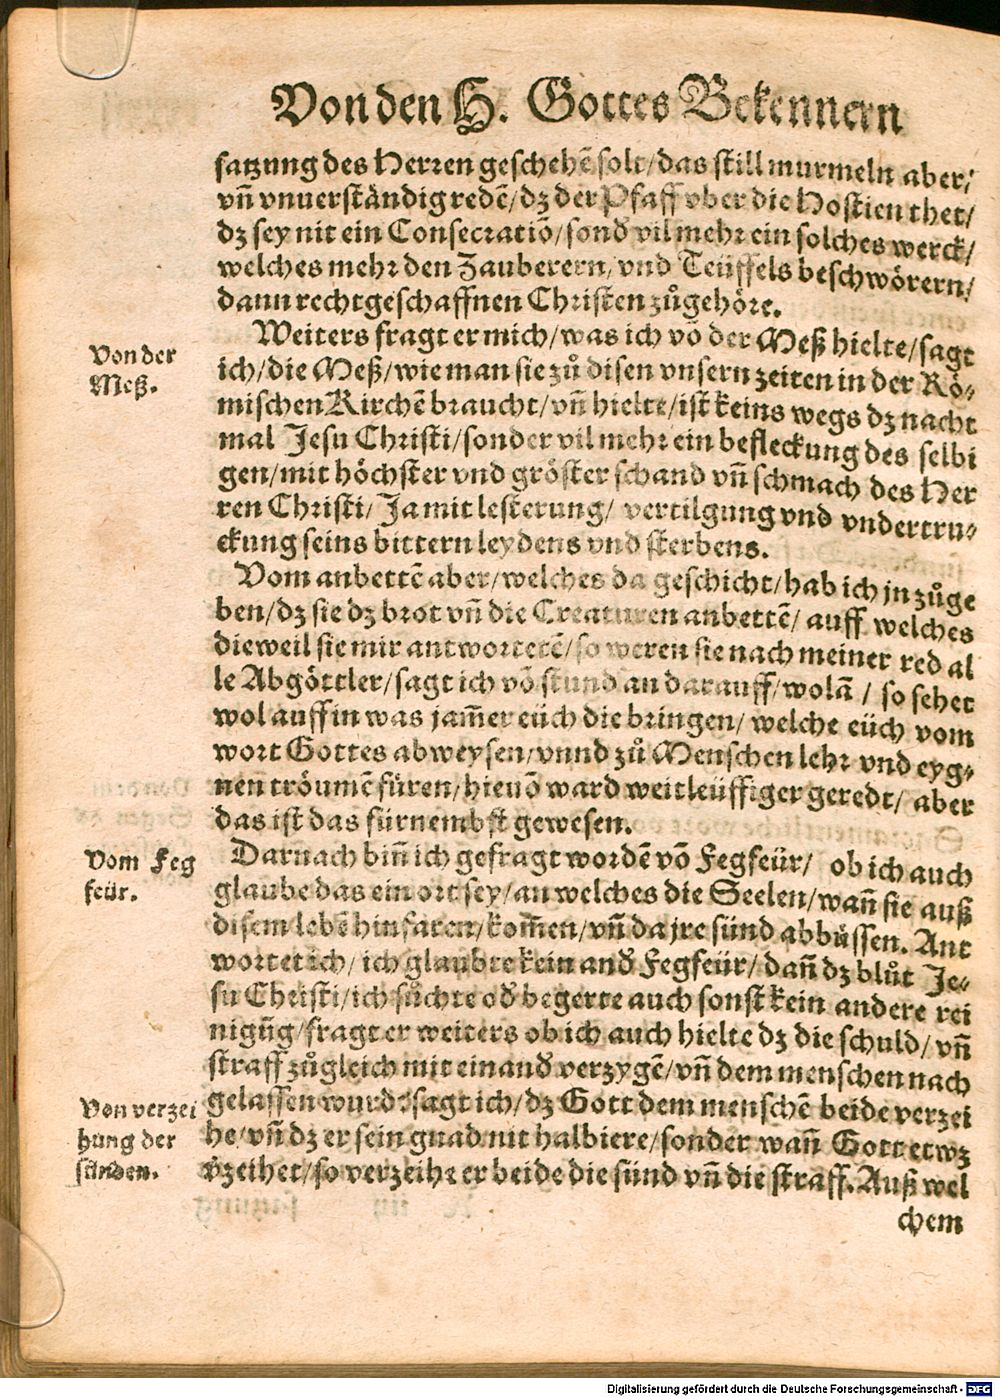 Von den H. Gottes Bekennern
satzung des Herren geschehē solt/das still murmeln aber/
vñ vnuerständig redē/dz der Pfaff vber die Hostien thet/
dz sey nit ein Consecratiō/sond vil mehr ein solches werck/
welches mehr den Zauberern/vnd Teüffels beschwörern/
dann rechtgeschaffnen Christen zůgehöre.
Weiters fragt er mich/was ich vō der Meß hielte/sagt
Von der
Meß.
ich/die Meß/wie man sie zů disen vnsern zeiten in der Rö⸗
mischen Kirchē braucht/vñ hielte/ist keins wegs dz nacht
mal Jesu Christi/sonder vil mehr ein befleckung des selbi
gen/mit höchster vnd gröster schand vñ schmach des Her
ren Christi/ Ja mit lesterung/ vertilgung vnd vndertru⸗
ckung seins bittern leydens vnd sterbens.
Vom anbettē aber/welches da geschicht/hab ich jn zůge
ben/dz sie dz brot vñ die Creaturen anbettē/ auff welches
dieweil sie mir antwortetē/so weren sie nach meiner red al
le Abgöttler/sagt ich vō stund an darauff/wolā / so sehet
wol auff in was jam̃er eüch die bringen/ welche eüch vom
wort Gottes abweysen/vnnd zů Menschen lehr vnd eyg⸗
nen tröumē füren/hieuō ward weitleüffiger geredt/ aber
das ist das fürnembst gewesen.
Vom Feg
feür.
Darnach biñ ich gefragt wordē vō Fegfeür/ ob ich auch
glaube das ein ort sey/an welches die Seelen/wañ sie auß
disem lebē hinfaren/kom̃en/vñ da jre sünd abbüssen. Ant
wortet ich/ ich glaubte kein and Fegfeür/ dañ dz blůt Je⸗
su Christi/ich sůchte od begerte auch sonst kein andere rei
nigūg/fragt er weiters ob ich auch hielte dz die schuld/vñ
straff zůgleich mit einand verzygē/vñ dem menschen nach
Von verzei
hung der
sünden.
gelassen wurd: sagt ich/dz Gott dem menschē beide verzei
he/vñ dz er sein gnad nit halbiere/sonder wañ Gott etwz
vzeihet/so verzeihr er beide die sünd vñ die straff. Auß wel
chem
Digitalisierung gefördert durch die Deutsche Forschungsgemeinschaft - DFG